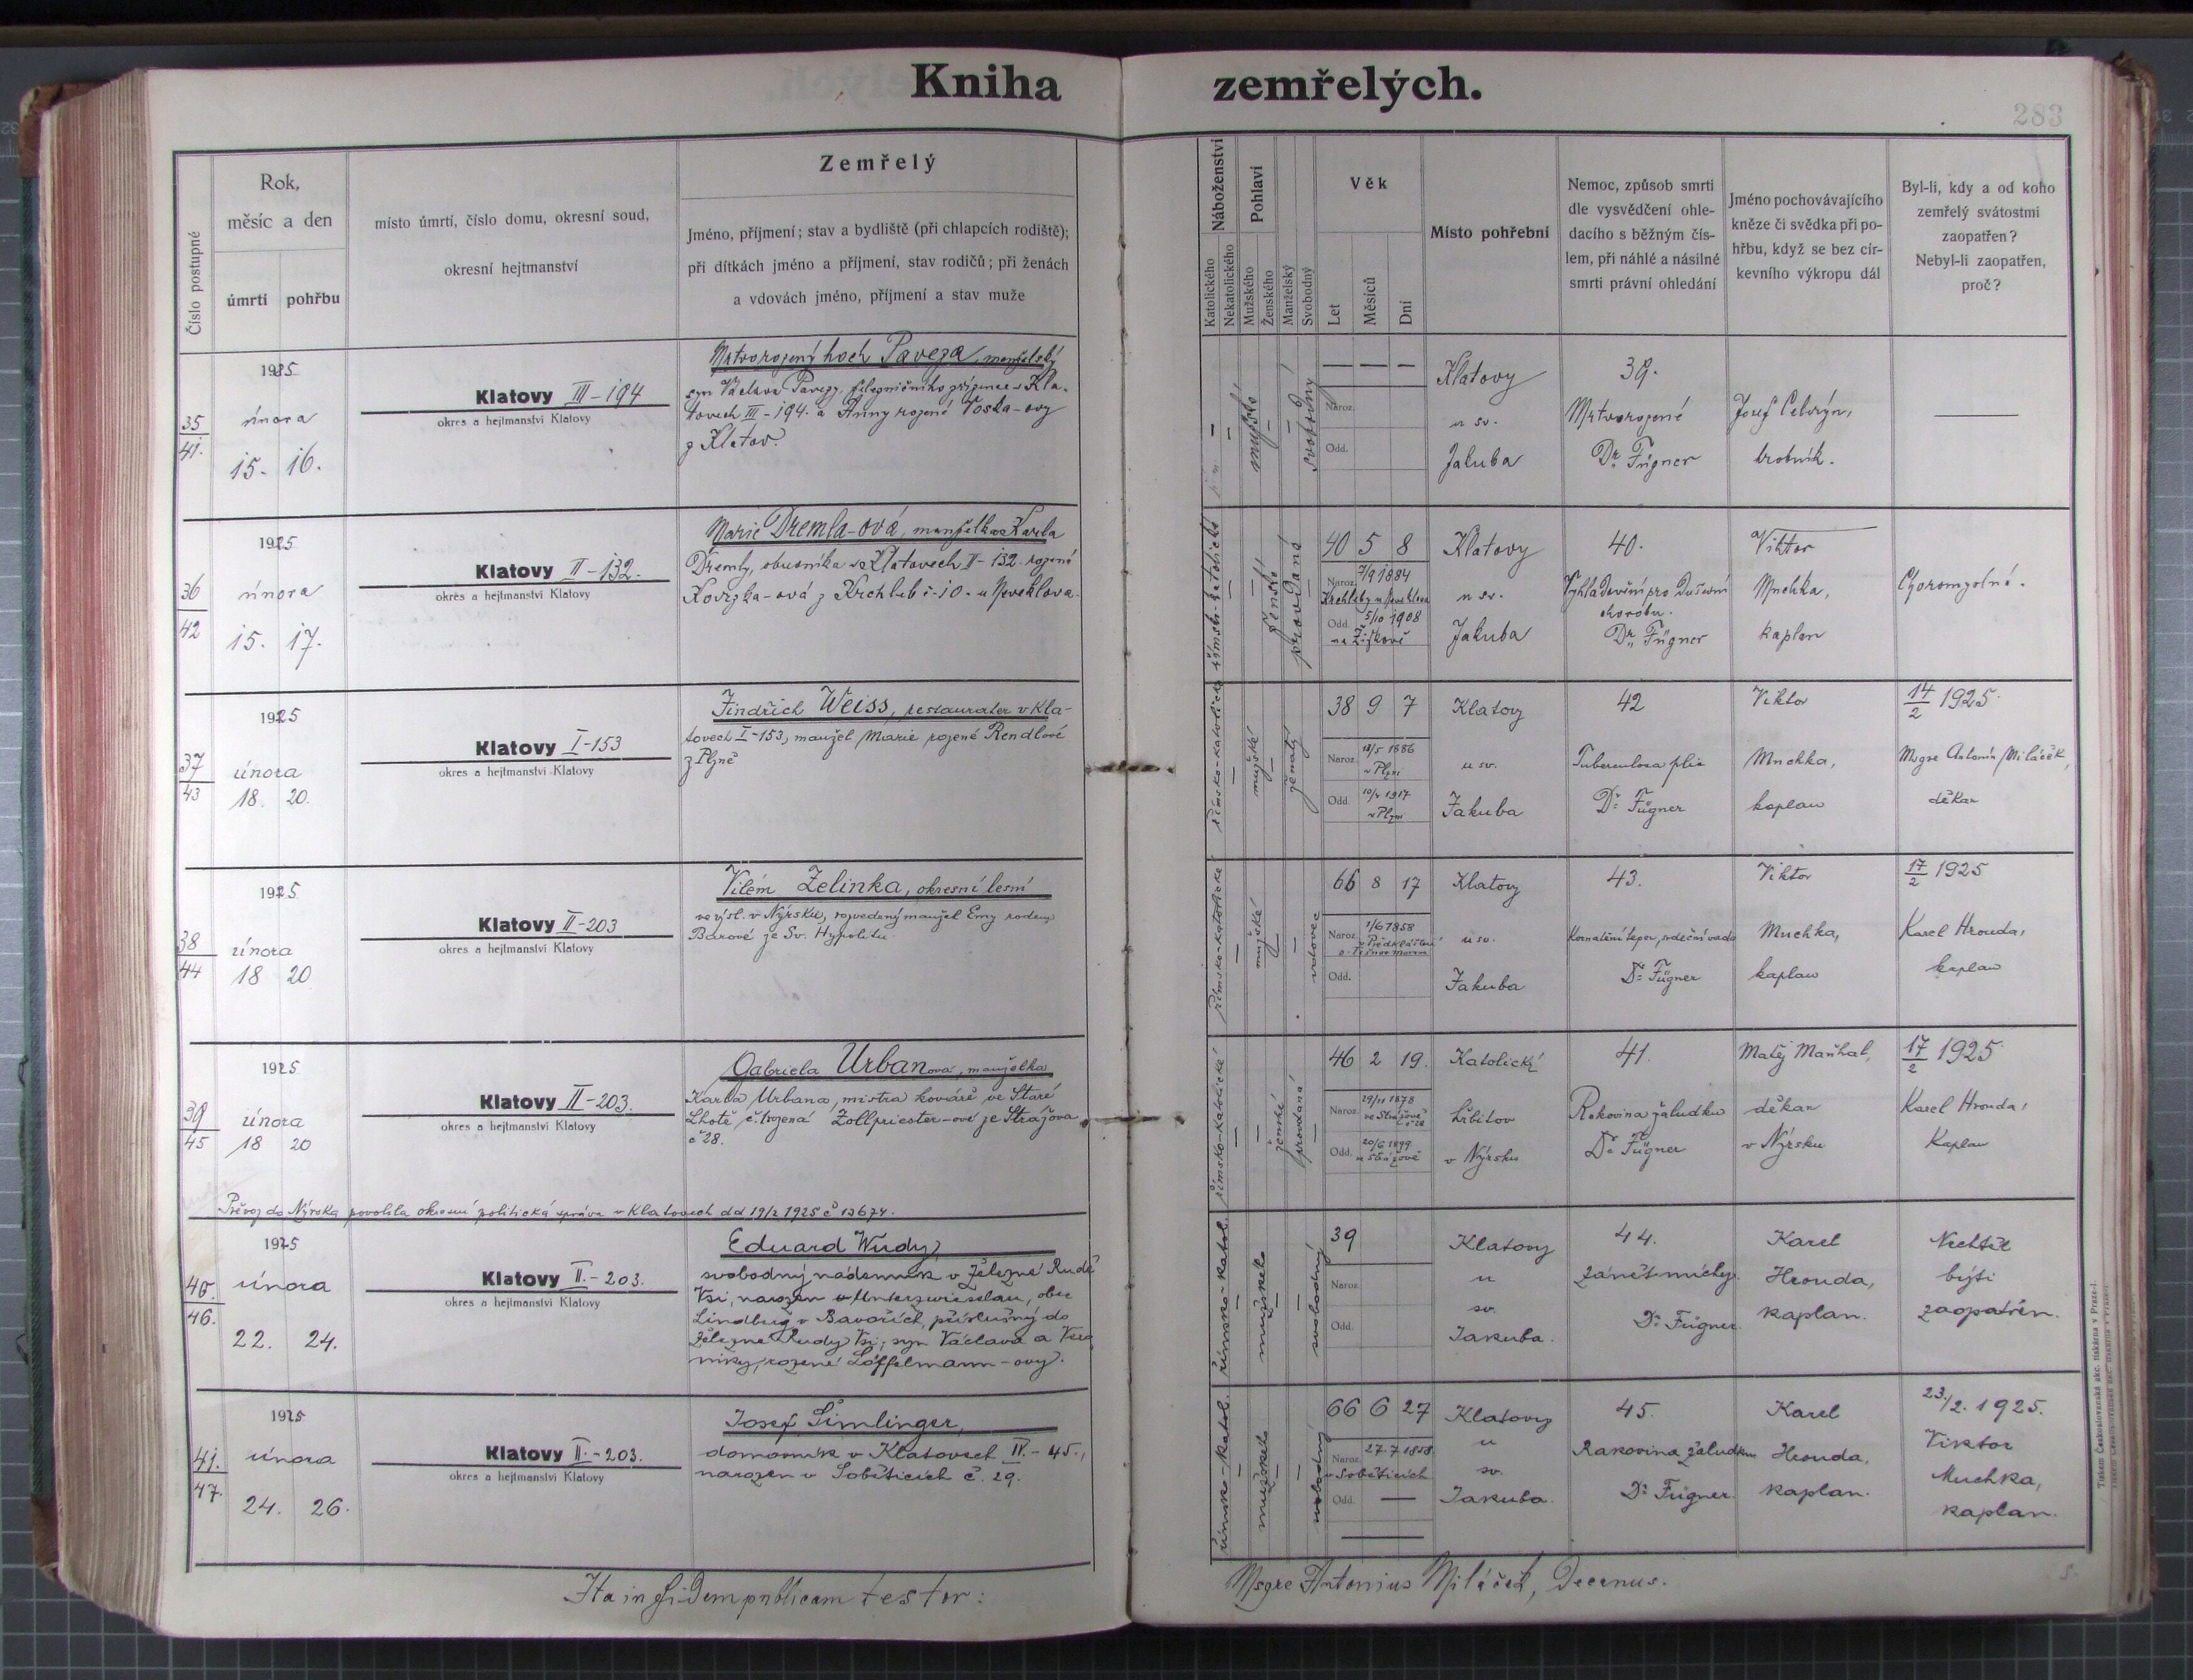 Kniha zemřelých.
283
Číslo postupné
Rok,
měsíc a den
úmrtí pohřbu
místo úmrtí, číslo domu, okresní soud,
okresní hejtmanství
Zemřelý
Jméno, příjmení; stav a bydliště (při chlapcích rodiště);
při dítkách jméno a příjmení, stav rodičů; při ženách
a vdovách jméno, příjmení a stav muže
Náboženství
Katolického
Nekatolického
Pohlaví
Mužského
Ženského
Manželský
Svobodný
Věk
Let
Měsíců
Dní
Místo pohřební
Nemoc, způsob smrti
dle vysvědčení ohle-
dacího s běžným čís-
lem, při náhlé a násilné
smrti právní ohledání
Jméno pochovávajícího
kněze či svědka při po-
hřbu, když se bez cír-
kevního výkropu dál
Byl-li, kdy a od koho
zemřelý svátostmi
zaopatřen?
Nebyl-li zaopatřen,
proč?
35
41.
1925
února
15. 16.
Klatovy III-194
okres a hejtmanství Klatovy
Mrtvorozený hoch Paveza, manželský
syn Václava Pavezy, v Kla-
tovech III-194. a Anny rozené Voska-ovy
z Klatov.
mužské
svobodný
— — —
Naroz.
Odd.
Klatovy
u sv.
Jakuba
39.
Mrtvorozené
Dr. Fügner
Josef
hrobník.
36
42
1925
února
15. 17.
Klatovy II-132.
okres a hejtmanství Klatovy
Marie Dremla-ová, manželka Karla
Dremly, obuvníka v Klatovech II-132. rozená
z Krchleb č. 10. u Neveklova.
římsko-katolické
ženské
provdaná
40 5 8
Naroz. 7/9 1884
Krchleby u Neveklova
Odd. 5/10 1908
na Žižkově
Klatovy
u sv.
Jakuba
40.
pro duševní
chorobu.
Dr. Fügner
Viktor
Muchka,
kaplan
Choromyslná.
37
43
1925
února
18. 20.
Klatovy I-153
okres a hejtmanství Klatovy
Jindřich Weiss, restaurater v Kla-
tovech I-153, manžel Marie rozené Rendlové
z Plzně
římsko-katolické
mužské
ženatý
38 9 7
Naroz. 1886
v Plzni
Odd. 1917
v Plzni
Klatovy
u sv.
Jakuba
42
Tuberculosa plic
Dr. Fügner
Viktor
Muchka,
kaplan
14/2 1925
Msgre Antonín Miláček,
děkan
38
44
1925
února
18 20
Klatovy II-203
okres a hejtmanství Klatovy
Vilém Zelinka, okresní lesní
ve výsl. v Nýrsku, rozvedený manžel Emy rozené
Barové ze Sv. Hypolitu
římsko-katolické
mužské
vdovec
66 8 17
Naroz. 1/6 1858
Odd.
Klatovy
u sv.
Jakuba
43.
Kornatění tepen, srdeční vada
Dr. Fügner
Viktor
Muchka,
kaplan
17/2 1925
Karel Hrouda,
kaplan
39
45
1925
února
18 20
Klatovy II-203.
okres a hejtmanství Klatovy
Gabriela Urbanová, manželka
Karla Urbana, mistra kováře ve Staré
Lhotě rozená Zollpriester-ové ze Strážova
č 28.
římsko-katolické
ženské
provdaná
46 2 19.
Naroz. 29/11 1878
ve Strážově
č 28
Odd. 20/6 1899
v Strážově
Katolický
hřbitov
v Nýrsku
41.
Rakovina žaludku
Dr. Fügner
Matěj Maňhal,
děkan
v Nýrsku
17/2 1925
Karel Hrouda,
Kaplan
Převoz do Nýrska povolila okresní politická správa v Klatovech dd 19/2 1925 č 13674.
40.
46.
1925
února
22. 24.
Klatovy II.-203.
okres a hejtmanství Klatovy
Eduard Wudy,
svobodný nádenník v Železné Rudě
Vsi, narozen v Unterzwieselau, obec
v Bavořích, příslušný do
Železné Rudy Vsi; syn Václava a Vero-
niky, rozené Löffelmann-ovy.
římsko-katol.
mužského
svobodný
39
Naroz.
Odd.
Klatovy
u
sv.
Jakuba.
44.
Zánět míchy.
Dr. Fügner.
Karel
Hrouda,
kaplan.
Nechtěl
býti
zaopatřen.
41.
47.
1925
února
24. 26.
Klatovy II.-203.
okres a hejtmanství Klatovy
Josef Šimlinger,
domovník v Klatovech IV.-45.,
narozen v Soběticích č. 29.
římsk-katol.
mužského
svobodný
66 6 27
Naroz. 27.7 1858
v Soběticích
Odd. —
Klatovy
u
sv.
Jakuba.
45.
Rakovina žaludku
Dr. Fügner.
Karel
Hrouda,
kaplan.
23./2. 1925.
Viktor
Muchka,
kaplan.
Ita in fidem publicam testor:
Msgre Antonius Miláček, Decanus.